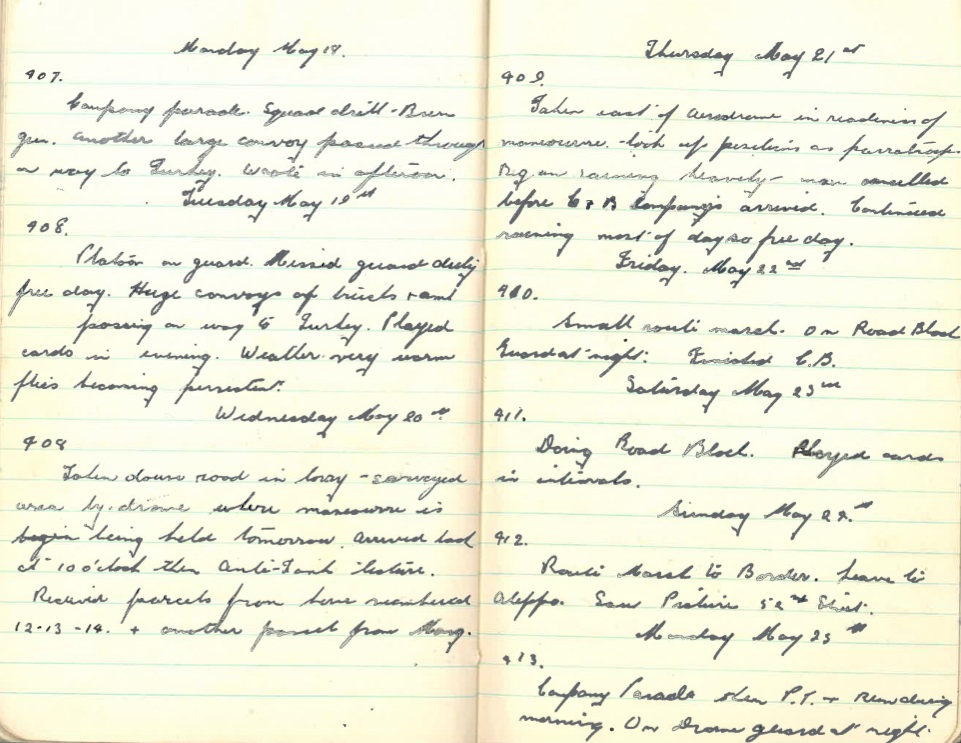 Monday May 18.
407.
Company parade. Squad drill - Bren
gun. Another large convoy passed through
on way to Turkey. Wrote in afternoon.
Tuesday May 19st
408.
Platoon on guard. Missed guard duty
free day. Huge convoys of trucks + and
passing on way to Turkey. Played
cards in evening. Weather very warm
flies becoming persistent.
Wednesday May 20th
409
Taken down road in lorry - surveyed
area by drome where maneourve is
begin being held tomorrow. Arrived back
at 10 o'clock then Anti-Tank lecture.
Receiver parcels from home numbered
12-13-14. + another parcel from Marg.
Thursday May 21st
409.
Taken east of aerodrome in readiness of
maneourve. - took up positions as parratroops.
Began raining heavily - man cancelled
before C + B Companys arrived. Continued
raining most of day so free day.
Friday. May 22nd
410.
Small route march. On Road Block
Guard at night. Finished C.B.
Saturday May 23rd
411.
Doing Road Block. Played cards
in intervals.
Sunday May 24th
412.
Route March to Border. Leave to
Aleppo. Saw Picture 52nd Street.
Monday May 25th
413.
Company Parade then P.T. + running
morning. On Drome guard at night.